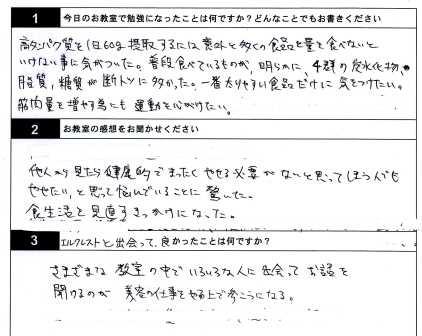 1 今日のお教室で勉強になったことは何ですか？どんなことでもお書きください
高タンパク質を1日60g 摂取するには 意外と多くの食品を量を食べないと
いけない事に気がついた。普段食べているものが、明らかに、4群の炭水化物、
脂質、糖質が断トツに多かった。一番太りやすい食品だけに気をつけたい。
筋肉量を増やす為にも 運動を心がけたい。
2 お教室の感想をお聞かせください
他人から見たら健康的でまったくやせる必要がないと思ってしまう人でも
やせたい、と思って悩んでいることに驚いた。
食生活を見直すきっかけになった。
3 エルクレストと出会って、良かったことは何ですか？
さまざまな 教室の中で いろいろな人に出会って お話を
聞けるのが 美容の仕事をやる上で参考になる。